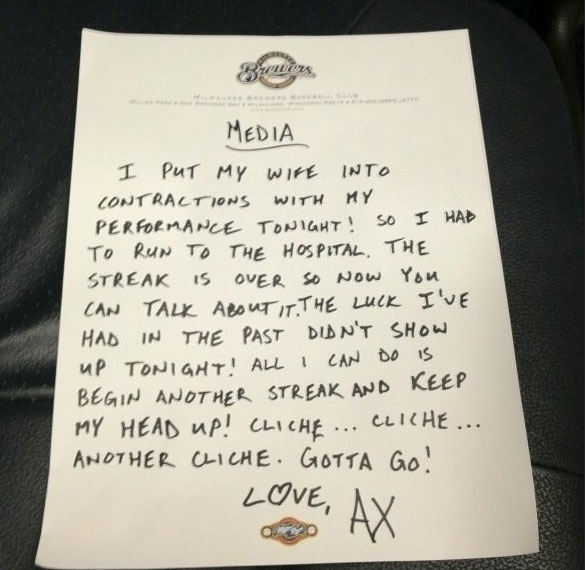 Brewers
MILWAUKEE BREWERS BASEBALL CLUB
MEDIA
I PUT MY WIFE INTO
CONTRACTIONS WITH MY
PERFORMANCE TONIGHT! SO I HAD
TO RUN TO THE HOSPITAL. THE
STREAK IS OVER SO NOW YOU
CAN TALK ABOUT IT. THE LUCK I'VE
HAD IN THE PAST DIDN'T SHOW
UP TONIGHT! ALL I CAN DO IS
BEGIN ANOTHER STREAK AND KEEP
MY HEAD UP! CLICHE ... CLICHE ...
ANOTHER CLICHE. GOTTA GO!
L♡VE, AX